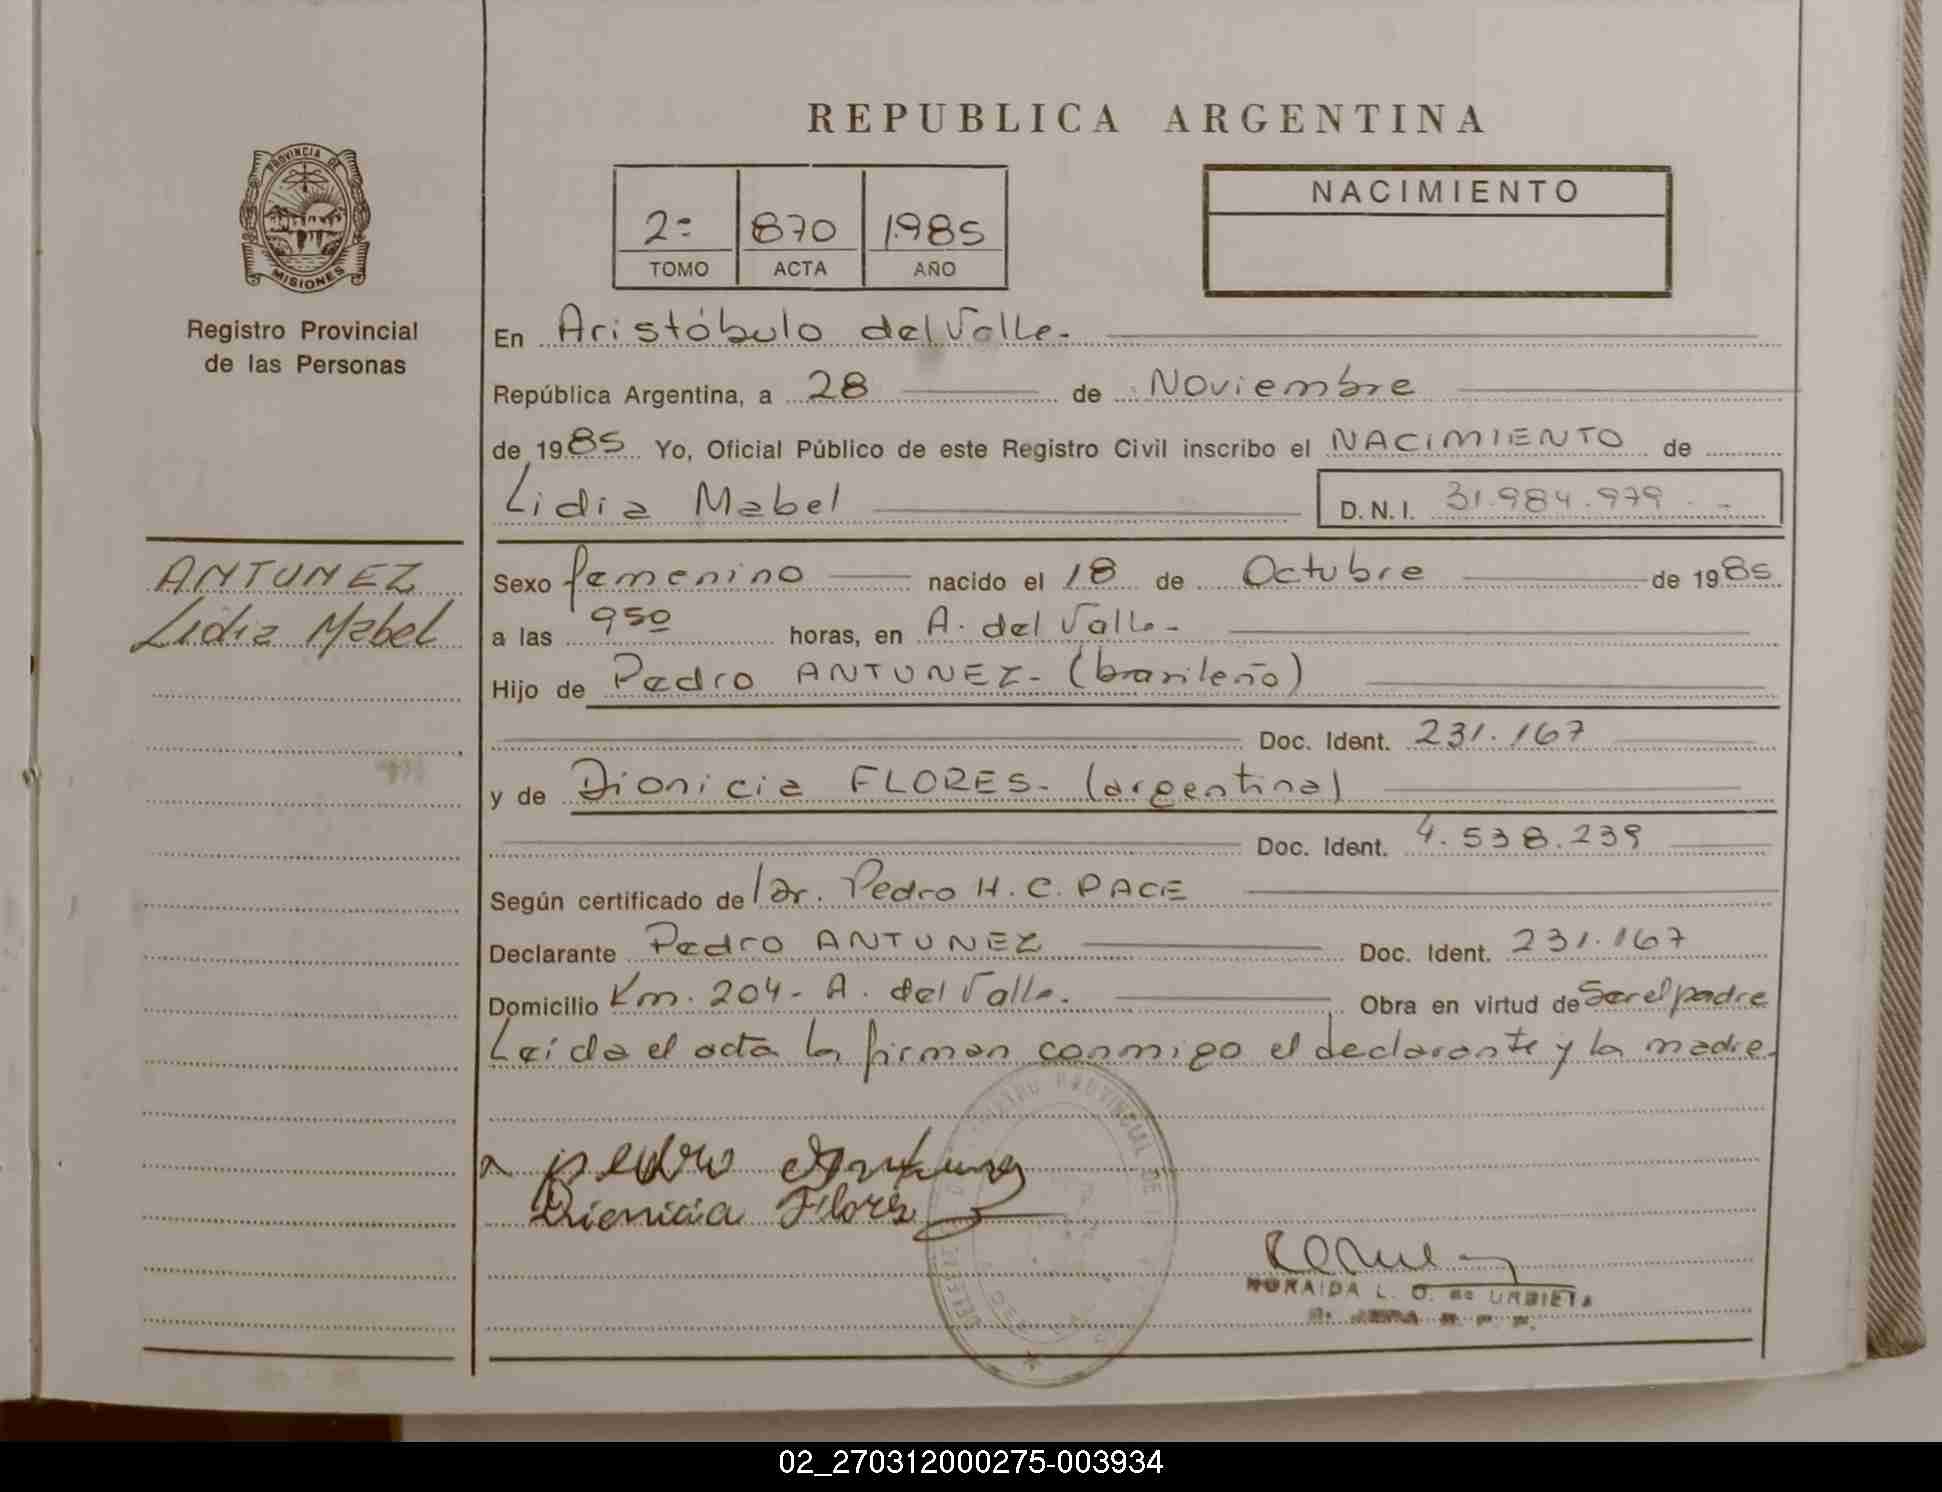 REPUBLICA ARGENTINA
PROVINCIA DE
MISIONES
Registro Provincial
de las Personas
2º 870 1985
TOMO ACTA AÑO
NACIMIENTO
En Aristóbulo del Valle.
República Argentina, a 28 de Noviembre
de 1985 Yo, Oficial Público de este Registro Civil inscribo el NACIMIENTO de
Lidia Mabel D.N.I. 31.984.979
ANTUNEZ
Lidia Mabel
Sexo femenino nacido el 18 de Octubre de 1985
a las 950 horas, en A. del Valle.
Hijo de Pedro ANTUNEZ - (brasileño)
Doc. Ident. 231.167
y de Dionicia FLORES - (argentina)
Doc. Ident. 4.538.239
Según certificado de Dr. Pedro H. C. PACE
Declarante Pedro ANTUNEZ Doc. Ident. 231.167
Domicilio Km. 204 - A. del Valle. Obra en virtud de Ser el padre
Leída el acta la firman conmigo el declarante y la madre.
REGISTRO PROVINCIAL DE
pedro Antunez
Dionicia Flores
NORAIDA L. O. de URBIETA
02_270312000275-003934